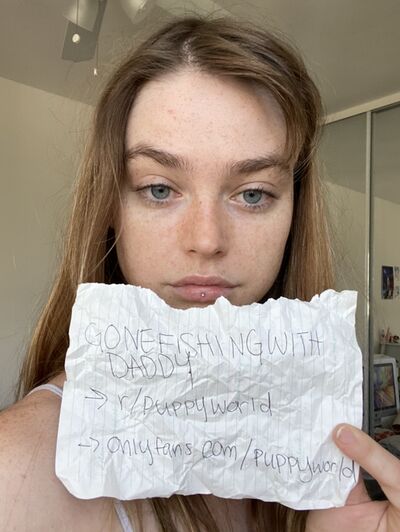 GONEFISHINGWITH
DADDY
→ r/puppyworld
→ onlyfans.com/puppyworld